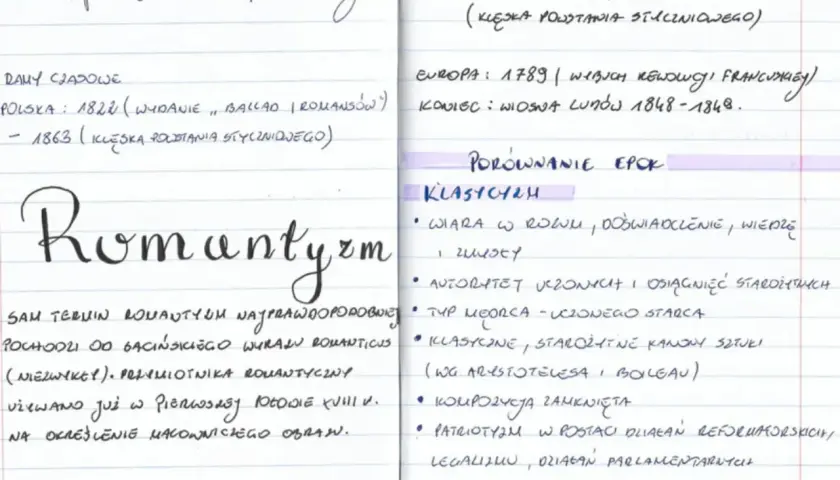 RAMY CZASOWE
POLSKA : 1822 ( WYDANIE „ BALLAD I ROMANSÓW")
– 1863 ( KLĘSKA POWSTANIA STYCZNIOWEGO)
Romantyzm
SAM TERMIN ROMANTYZM NAJPRAWDOPODOBNIEJ
POCHODZI OD ŁACIŃSKIEGO WYRAZU ROMANTICUS
( NIEZWYKŁY). PRZYMIOTNIKA ROMANTYCZNY
UŻYWANO JUŻ W PIERWSZEJ POŁOWIE XVIII W.
NA OKREŚLENIE MALOWNICZEGO OBRAZU.
( KLĘSKA POWSTANIA STYCZNIOWEGO)
EUROPA : 1789 ( WYBUCH REWOLUCJI FRANCUSKIEJ)
KONIEC : WIOSNA LUDÓW 1848 - 1849.
PORÓWNANIE EPOK
KLASYCYZM
• WIARA W ROZUM , DOŚWIADCZENIE , WIEDZĘ
I ZMYSŁY
• AUTORYTET UCZONYCH I OSIĄGNIĘĆ STAROŻYTNYCH
• TYP MĘDRCA - UCZONEGO STARCA
• KLASYCZNE , STAROŻYTNE KANONY SZTUKI
(WG ARYSTOTELESA I BOILEAU)
• KOMPOZYCJA ZAMKNIĘTA
• PATRIOTYZM W POSTACI DZIAŁAŃ REFORMATORSKICH,
LEGALIZMU , DZIAŁAŃ PARLAMENTARNYCH